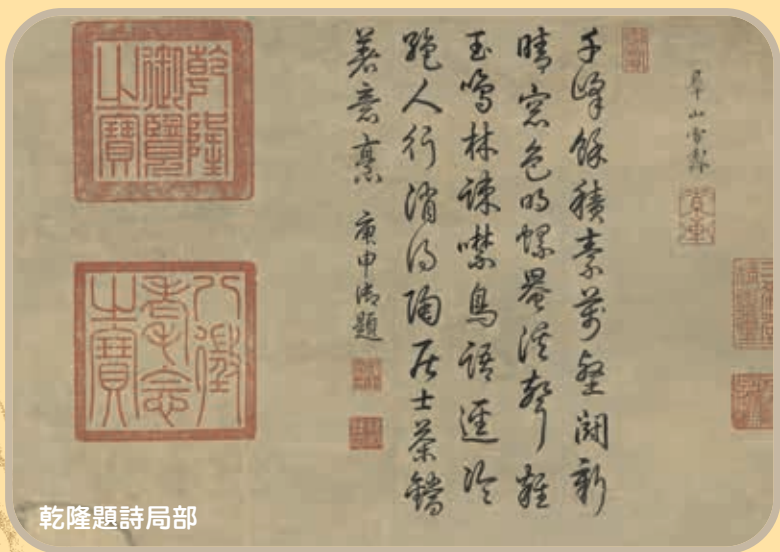 千峰餘積素萬壑闢新
晴窓色明螺黛溪聲雜
玉鳴林疎噤鳥語逕冷
絶人行消得陶居士茶鐺
著意烹 庚申御題
乾隆御覽之寶
八徵耄念之寶
乾隆題詩局部